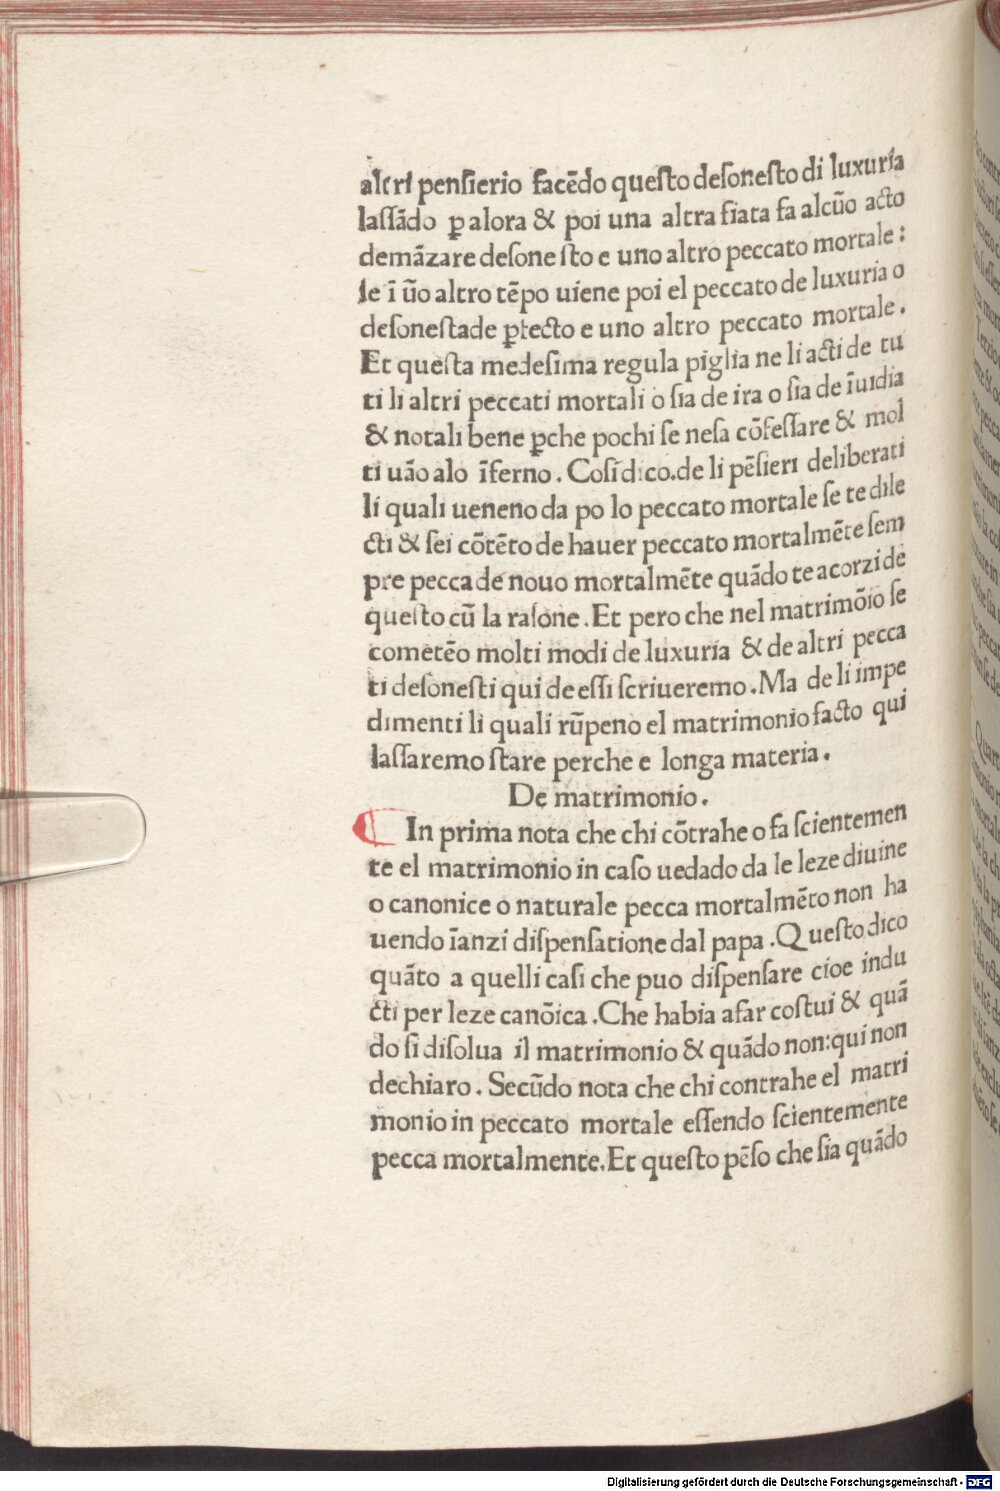 altri pensierio facēdo questo desonesto di luxuria
lassādo ꝑ alora & poi una altra fiata fa alcūo acto
demāzare desonesto e uno altro peccato mortale:
se ī ūo altro tēpo uiene poi el peccato de luxuria o
desonestade ꝑfecto e uno altro peccato mortale.
Et questa medesima regula piglia ne li acti de tu
ti li altri peccati mortali o sia de ira o sia de īuidia
& notali bene ꝑche pochi se nesa cōfessare & mol
ti uāo alo īferno. Cosi dico.de li pēsieri deliberati
li quali ueneno da po lo peccato mortale se te dile
cti & sei cōtēto de hauer peccato mortalmēte sem
pre pecca de nouo mortalmēte quādo te acorzi de
questo cū la rasone. Et pero che nel matrimōio se
cometēo molti modi de luxuria & de altri pecca
ti desonesti qui de essi scriueremo. Ma de li impe
dimenti li quali rūpeno el matrimonio facto qui
lassaremo stare perche e longa materia.
De matrimonio.
In prima nota che chi cōtrahe o fa scientemen
te el matrimonio in caso uedado da le leze diuine
o canonice o naturale pecca mortalmēto non ha
uendo īanzi dispensatione dal papa. Questo dico
quāto a quelli casi che puo dispensare cioe indu
cti per leze canōica. Che habia afar costui & quā
do si disolua il matrimonio & quādo non: qui non
dechiaro. Secūdo nota che chi contrahe el matri
monio in peccato mortale essendo scientemente
pecca mortalmente. Et questo pēso che sia quādo
Digitalisierung gefördert durch die Deutsche Forschungsgemeinschaft - DFG